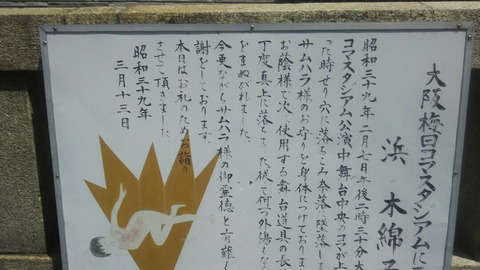 大阪梅田コマスタジアムに
浜 木綿子
昭和三十九年二月七日午後二時三十分大
コマスタジアム公演中舞台中央のコマが上
った時せり穴に落ちこみ奈落へ墜落しま
サムハラ様のお守りを身体につけておりま
お蔭様で次に使用する舞台道具の長
丁度真上に落ちました。従て何一つ外傷もな
をまぬがれました。
今更ながらサムハラ様の御霊徳と有難く
謝をしております。
本日はお礼のためお詣り
させて頂きました
昭和三十九年
三月十三日